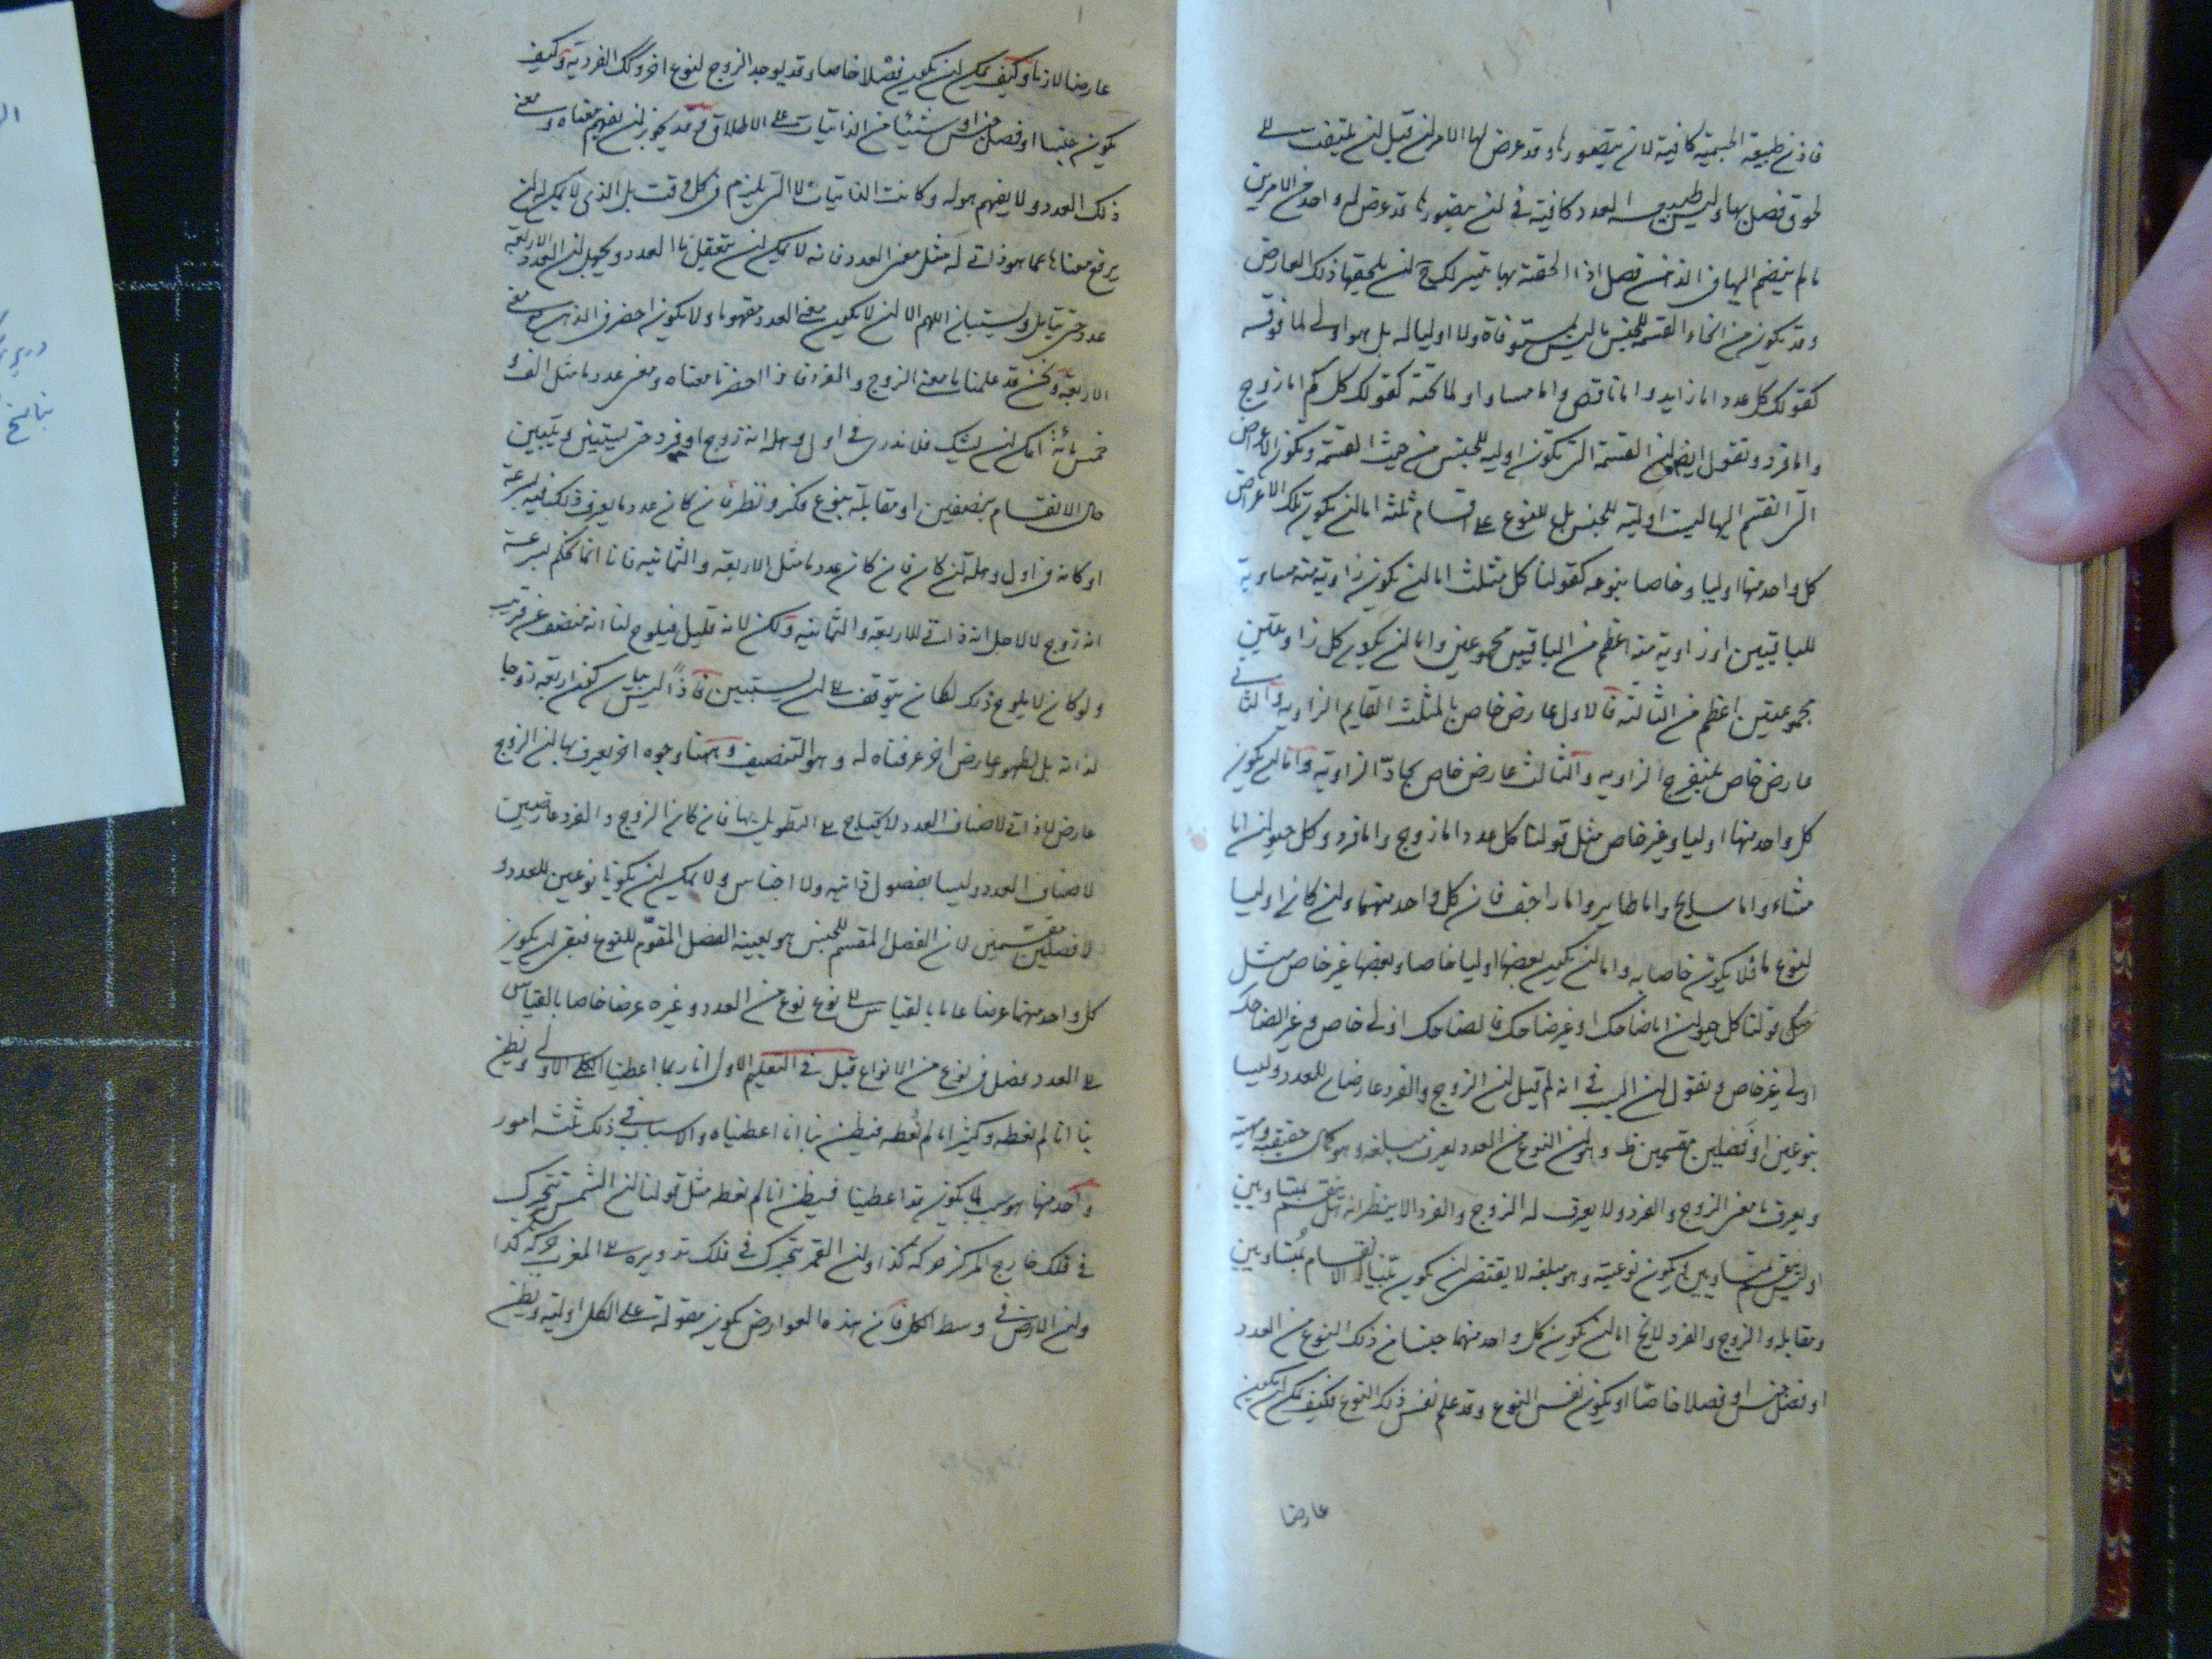 فاذن طبيعة الجسمية كافية لان يتصورها وقد عرض لها الامر ان قبل ان يلتفت الى
لحوق فصل بها وليس طبيعة العدد كافية فى ان يتصورها قد عرض له واحد من الامرين
ما لم ينضم اليها فى الذهن فصل اذا الحقته بها تيسر لك ح ان يلحقها ذلك العارض
وقد يكون من انحاء القسمة للجنس ما ليس مستوفاة ولا اوليا له بل هو اولى لما فوقه
كقولك كل عدد اما زايد واما ناقص واما مساو او لما تحته كقولك كل كم اما زوج
واما فرد ونقول ايضا ان القسمة التى تكون اولية للجنس من حيث القسمة وتكون الاعراض
التى انقسم اليها ليست اولية للجنس بل للنوع على اقسام ثلثة اما ان يكون تلك الاعراض
كل واحد منها اوليا وخاصا بنوعه كقولنا كل مثلث اما ان يكون زاوية منه مساوية
للباقيتين او زاوية منه اعظم من الباقيتين مجموعتين واما ان يكون كل زاويتين
مجموعتين اعظم من الثالثة فالاول عارض خاص بالمثلث القايم الزاوية والثانى
عارض خاص بمنفرج الزاوية والثالث عارض خاص بحاد الزاوية واما ان يكون
كل واحد منها اوليا وغير خاص مثل قولنا كل عدد اما زوج واما فرد وكل حيوان اما
مشاء واما سابح واما طاير واما زاحف فان كل واحد منهما وان كان اوليا
لنوع ما فلا يكون خاصا به واما ان يكون بعضها اوليا خاصا وبعضها غير خاص مثل
قولنا كل حيوان اما ضاحك او غير ضاحك فالضاحك اولى خاص وغير الضاحك
اولى غير خاص ونقول ان السبب فى انه لم قيل ان الزوج والفرد عارضان للعدد وليسا
بنوعين او فصلين مقسمين وهو ان النوع من العدد يعرف مبلغه وهو كمال حقيقته
ويعرف ما معنى الزوج والفرد ولا يعرف له الزوج والفرد الا بنظر انه هل ينقسم بمتساويين
او ليس ينقسم بمتساويين ويكون نوعيته وهو مبلغه لا يقتضى ان يكون الانقسام بمتساويين
ومقابله والزوج والفرد لا يخ اما ان يكون كل واحد منهما جنسا من ذلك النوع من العدد
او فصل جنس او فصلا خاصا او يكون نفس النوع وقد علم نفس ذلك النوع فكيف يمكن ان يكون
عارضا
عارضا لازما وكيف يمكن ان يكون فصلا خاصا وقد يوجد الزوج لنوع اخر وكك الفردية وكيف
يكون جنسا او فصل جنس او شيئا من الذاتيات على الاطلاق وقد يجوز ان نفهم معناه ومعنى
ذلك العدد ولا يفهم هو له وكانت الذاتيات لا التى يلزم فى كل وقت بل الذى لا يمكن ان
يرفع معناها عما هو ذاتى له مثل معنى العدد فانه لا يمكن ان يتعقل ما العدد ويجهل ان الاربعة
عدد حتى يتامل ويستبان اللهم الا ان لا يكون معنى العدد مفهوما ولا يكون احضر فى الذهن معنى
الاربعة ونحن قد علمنا ما معنى الزوج والفرد فاذا احضرنا معناه ومعنى عدد ما مثل الف و
خمس مائة امكن ان يشك فلا ندرى فى اول وهلة انه زوج او فرد حتى يستبين ويتبين
حال الانقسام بنصفين او مقابلة بنوع فكر ونظر فان كان عدد ما يعرف ذلك فيه بسرعة
او كان فى اول وهلة ان كان فان كان عدد ما مثل الاربعة والثمانية فانا انما نحكم بسرعة
انه زوج لا لاجل انه ذاتى للاربعة والثمانية ولكن لانه قليل فيلوح لنا انه منتصف عن قريب
ولو كان لا يلوح ذلك لكان يتوقف الى ان يستبين فاذا ليس كون اربعة زوجا
لذاته بل لظهور عارض اخر عرفناه له وهو التنصيف وههنا وجوه اخر يعرف بها ان الزوج
عارض لا ذاتى لاصناف العدد لا يحتاج الى التطويل بها فان كان الزوج والفرد عارضين
لاصناف العدد وليسا بفصول ذاتية ولا اجناس ولا يمكن ان يكونا نوعين للعدد و
لا فصلين مقسمين لان الفصل المقسم للجنس هو بعينه الفصل المقوم للنوع فبقى ان يكون
كل واحد منهما عرضا عاما بالقياس الى نوع نوع من العدد وغيره عرضا خاصا بالقياس
الى العدد فصل فى نوع من الانواع قيل فى التعليم الاول انا ربما اعطينا الكلى الاولى ونظن
بنا انا لم نعطه وكثيرا ما لم نعطه فيظن بنا انا اعطيناه والاسباب فى ذلك ثلثة امور
واحد منها هو سبب لما يكون قد اعطينا فيظن انا لم نعط مثل قولنا ان الشمس تتحرك
فى فلك خارج المركز حركة كذا وان القمر يتحرك فى فلك تدويره الى المغرب حركة كذا
وان الارض فى وسط الكل فان هذه العوارض يكون مقولة على الكل اولية ويظن